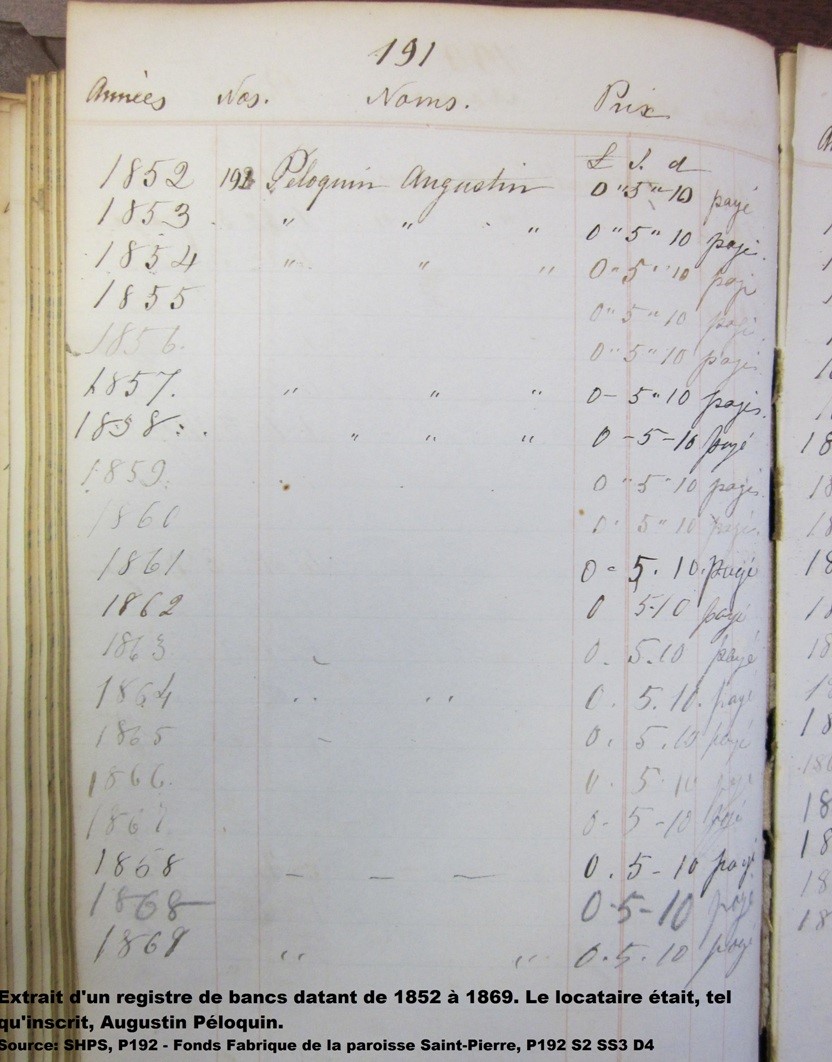 191
Années Nos. Noms. Prix
£ s. d
1852 192 Péloquin Augustin 0 " 5 " 10 payé
1853 " " " 0 " 5 " 10 payé.
1854 " " " 0 " 5 " 10 payé
1855 0 " 5 " 10 payé
1856. 0 " 5 " 10 payé
1857. " " " 0 - 5 " 10 payés.
1858: . " " " 0 - 5 - 10 payé
1859. 0 " 5 " 10 payés.
1860 0 " 5 " 10 payé.
1861 0 - 5. 10. payé
1862 0 5-10 payé
1863 0. 5.10 payé
1864 " " 0. 5. 10. payé
1865 0. 5.10 payé
1866. 0. 5-10 payé
1867. 0- 5-10 payé
1868 — — — 0. 5-10 payé
1868 0-5-10 payé
1869 " " 0. 5. 10 payé
Extrait d'un registre de bancs datant de 1852 à 1869. Le locataire était, tel
qu'inscrit, Augustin Péloquin.
Source: SHPS, P192 - Fonds Fabrique de la paroisse Saint-Pierre, P192 S2 SS3 D4